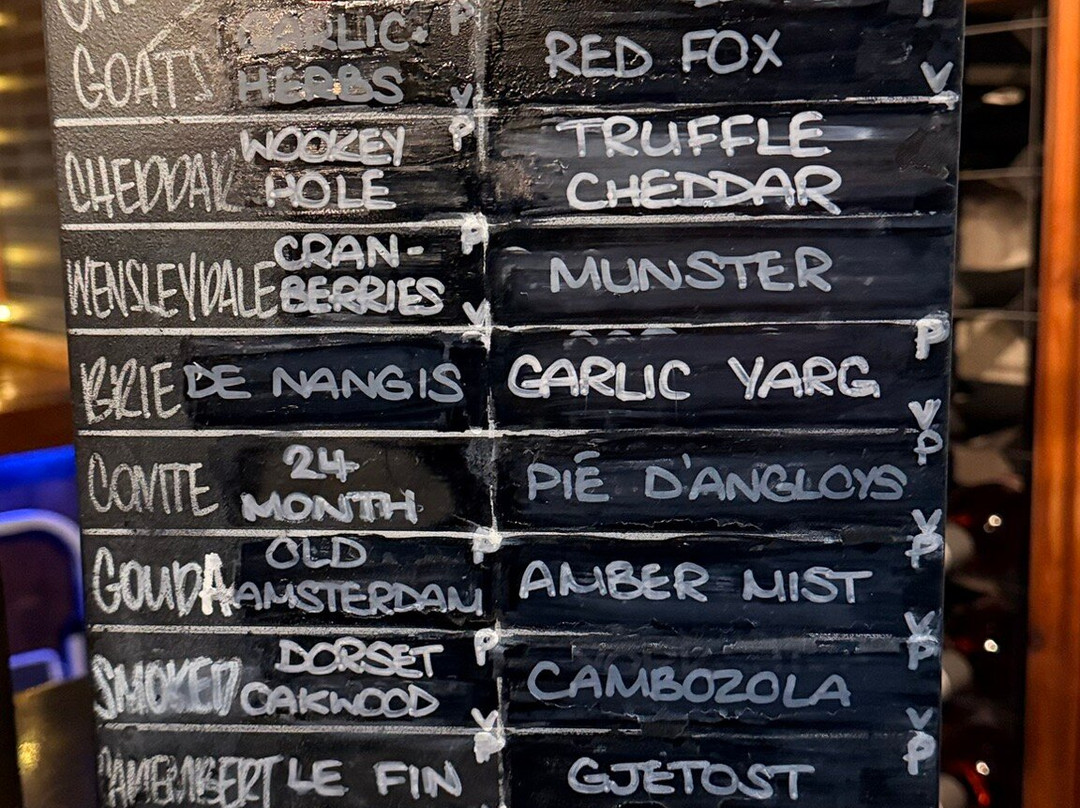 GOATS GARLIC+ HERBS P V
CHEDDAR WOOKEY HOLE P
WENSLEYDALE CRAN- BERRIES P V
BRIE DE NANGIS
COMTE 24 MONTH
GOUDA OLD AMSTERDAM P
SMOKED DORSET OAKWOOD P V
CAMEMBERT LE FIN
RED FOX V
TRUFFLE CHEDDAR
MUNSTER
GARLIC YARG P V
PIÉ D'ANGLOYS P V
AMBER MIST P V
CAMBOZOLA P V
GJETOST P